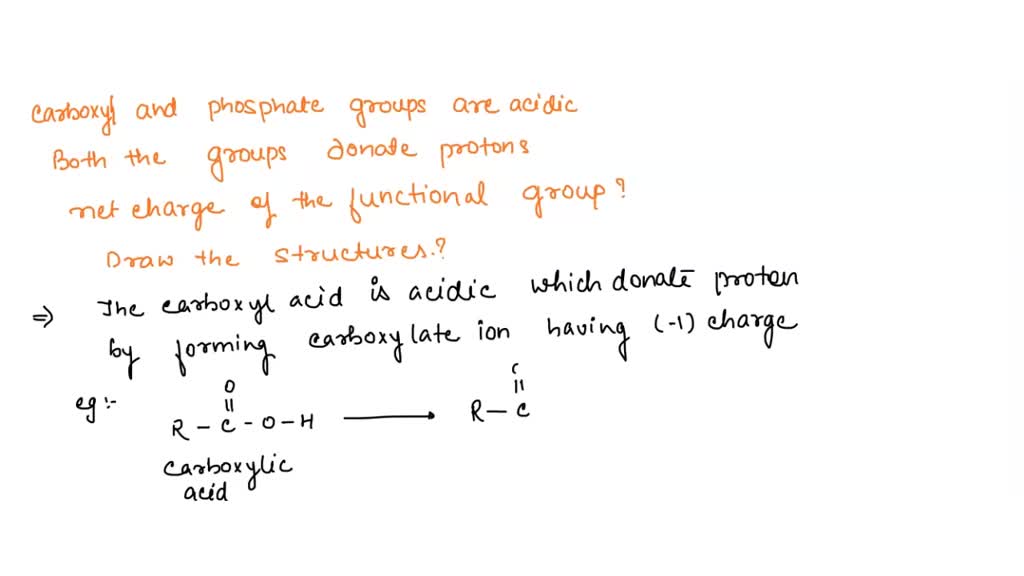 carboxyl and phosphate groups are acidic
Both the groups donate protons
net charge of the functional group?
Draw the structures.?
⇒ The carboxyl acid is acidic which donate proton
by forming carboxylate ion having (-1) charge
eg:-
O
||
R - C - O - H ⟶ R - C
||
carboxylic
acid